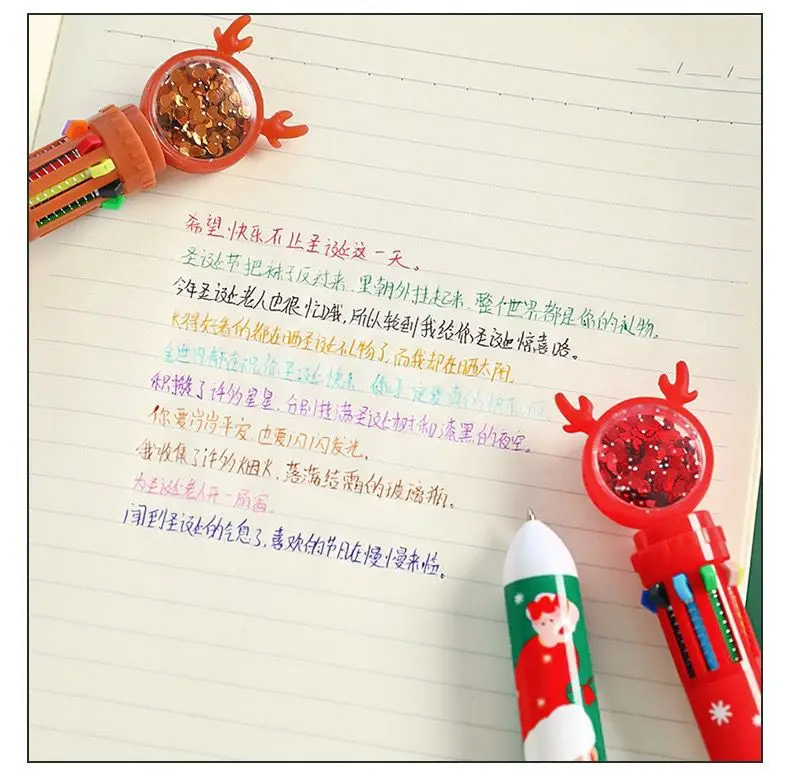 希望快乐不止圣诞这一天。
圣诞节把袜子反过来，里朝外挂起来，整个世界都是你的礼物。
今年圣诞老人也很忙哦，所以轮到我给你圣诞惊喜咯。
的都在晒圣诞礼物了，而我却在晒太阳
全世界都在祝你圣诞快乐，你
积攒了许多星星，分别挂满圣诞树和漆黑的夜空。
你要岁岁平安，也要闪闪发光。
我收集了许多烟火，落满结霜的玻璃瓶。
为圣诞老人开一扇窗
闻到圣诞的气息了，喜欢的节日在慢慢来临。